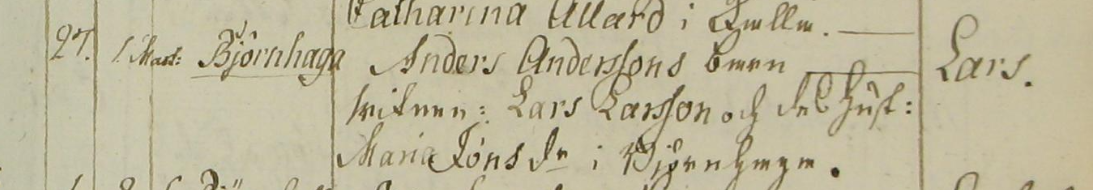 Catharina Allard i Qvelle.
27. 1 Mart: Björnhaga Anders Anderssons barn Lars.
witnen: Lars Larsson och des Hust:
Maria Jönsdr i Björnhaga.